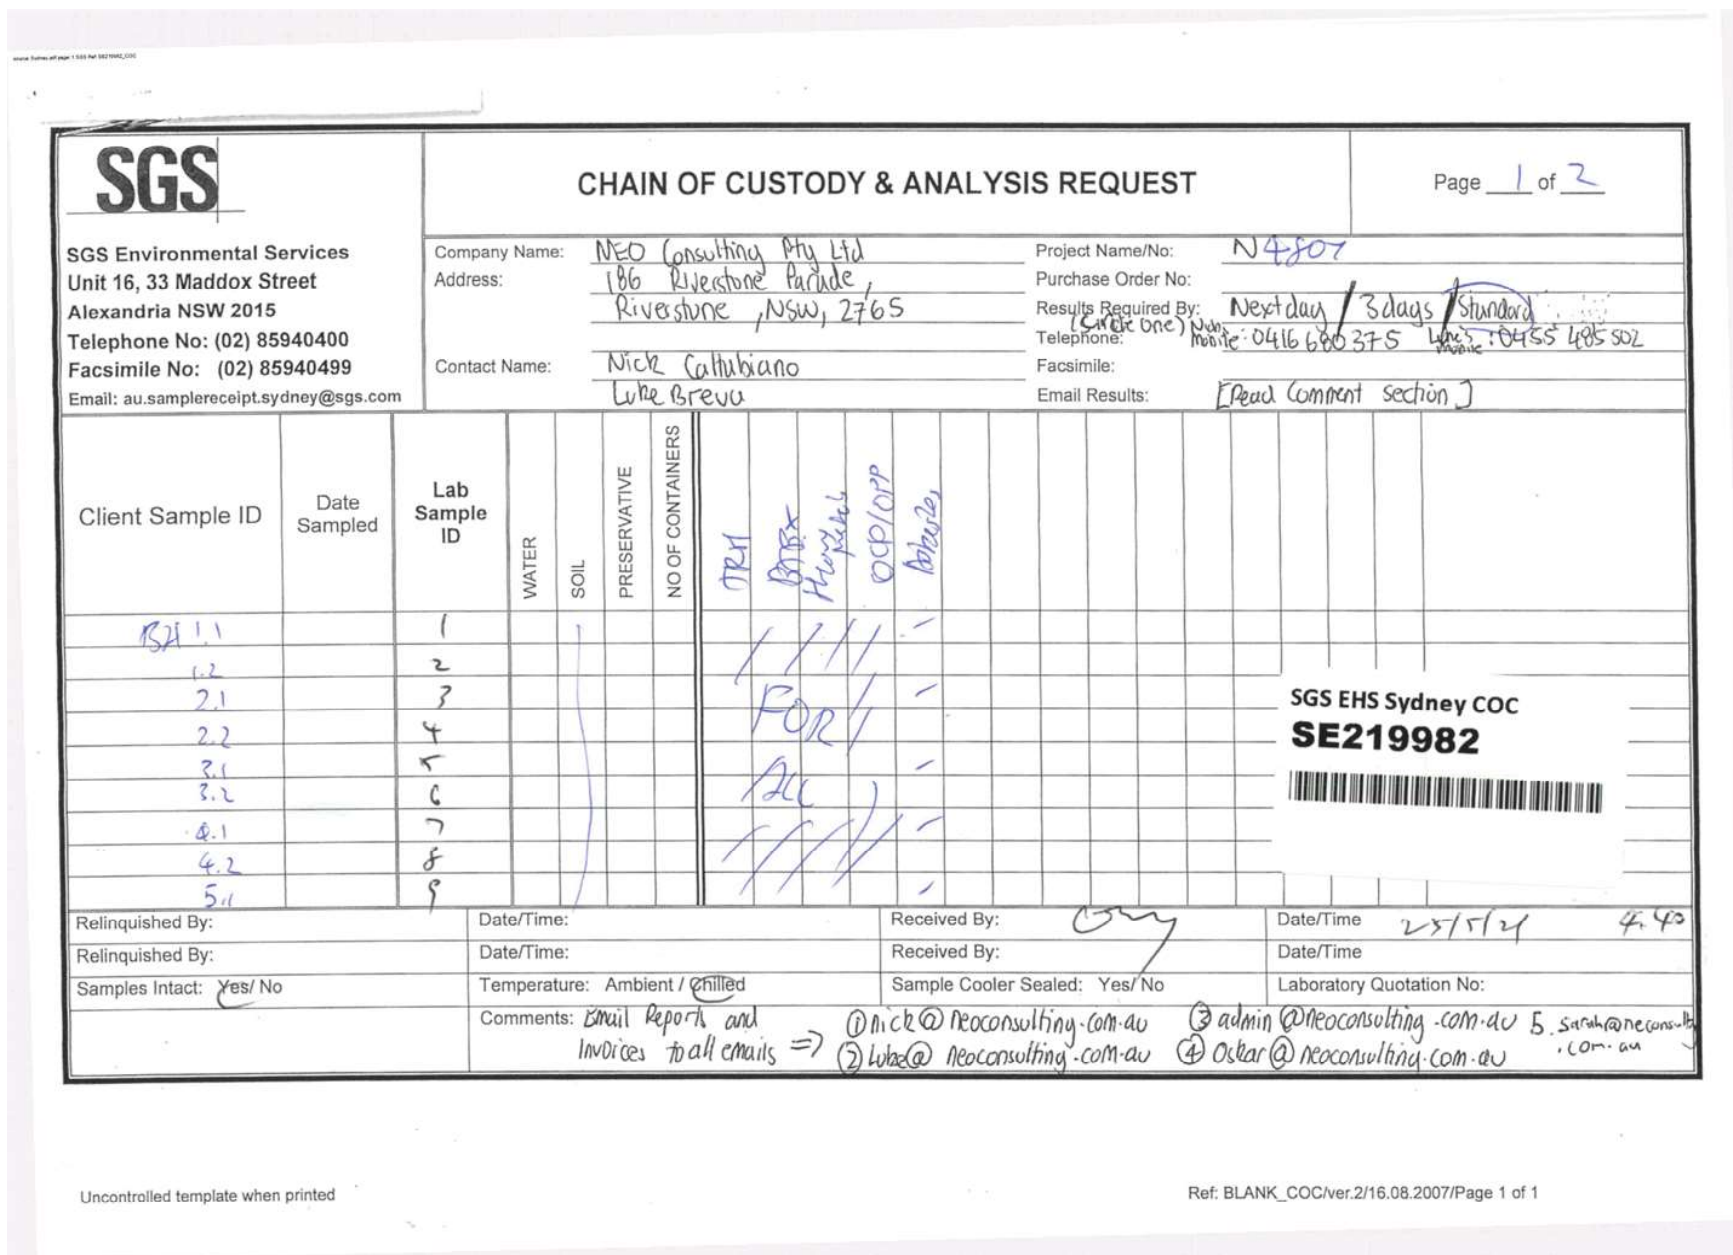 SGS
CHAIN OF CUSTODY & ANALYSIS REQUEST
Page 1 of 2
SGS Environmental Services
Unit 16, 33 Maddox Street
Alexandria NSW 2015
Telephone No: (02) 85940400
Facsimile No: (02) 85940499
Email: au.samplereceipt.sydney@sgs.com
Company Name: NEO Consulting Pty Ltd
Address: 186 Riverstone Parade,
Riverstone, NSW, 2765
Contact Name: Nick
Luke
Project Name/No: N4807
Purchase Order No:
Results Required By: Next day / 3 days / Standard
(Circle One)
Telephone: Mobile: 0416 680 375 : 0455 485 502
Facsimile:
Email Results: [Read Comment Section]
Client Sample ID Date Sampled Lab Sample ID WATER SOIL PRESERVATIVE NO OF CONTAINERS TRH BTEX Heavy Metals OCP/OPP Asbestos
BH 1.1 1
1.2 2
2.1 3
2.2 4
3.1 5
3.2 6
4.1 7
4.2 8
5.1 9
FOR
ALL
SGS EHS Sydney COC
SE219982
Relinquished By: Date/Time: Received By: Date/Time 25/5/21 4.40
Relinquished By: Date/Time: Received By: Date/Time
Samples Intact: Yes/ No Temperature: Ambient / Chilled Sample Cooler Sealed: Yes/ No Laboratory Quotation No:
Comments: Email Reports and ① nick@neoconsulting.com.au ③ admin@neoconsulting.com.au 5. sarah@neconsult
Invoices to all emails => ② Luke@neoconsulting.com.au ④ Oskar@neoconsulting.com.au .com.au
Uncontrolled template when printed
Ref: BLANK_COC/ver.2/16.08.2007/Page 1 of 1